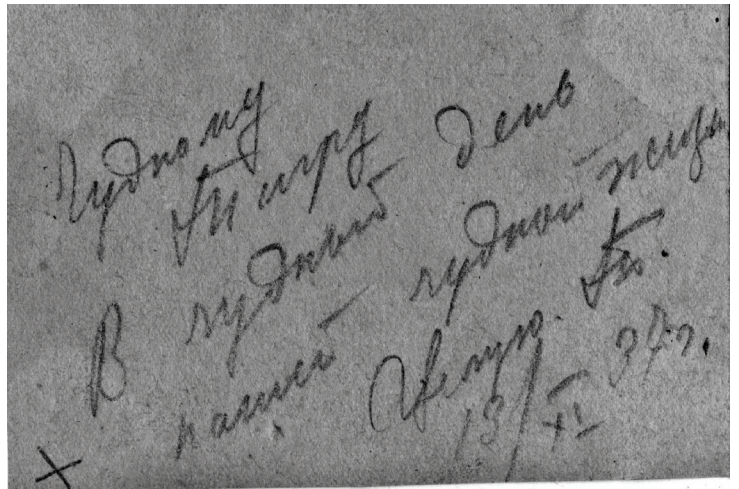 Чудному
Тигру
В чудный день
нашей чудной жизни
Целую. Т.
13/XI 37г.